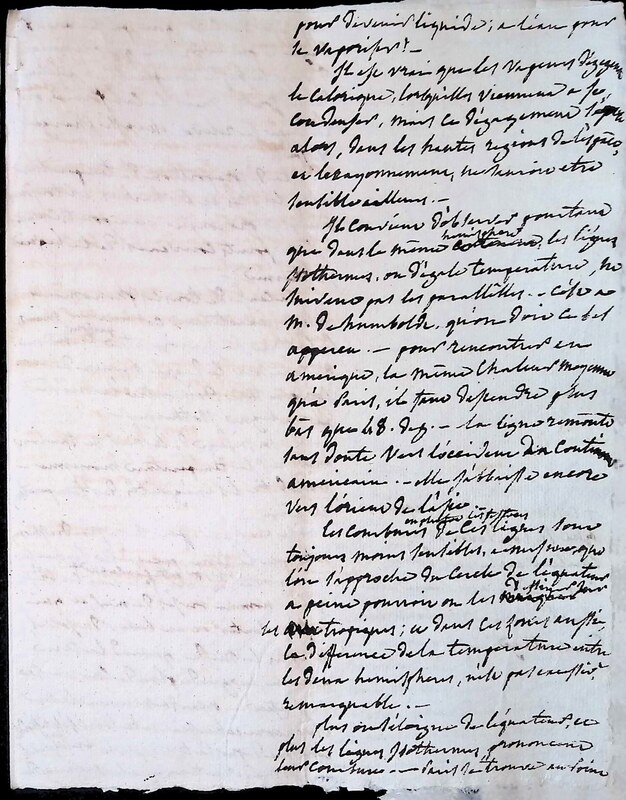 pour devenir liquide; a l'eau pour
se vaporiser! —
Il est vrai que les vapeurs dégagent
le Calorique, lorsqu'elles viennent a se
condenser, mais ce dégagement
alors, dans les hautes régions de
et le rayonnement, ne sauroit etre
sensible ailleurs. —
Il convient d'observer pourtant
que dans le même hémisphere, les lignes
Isothermes, ou d'égale temperature, ne
suivent pas les parallèles. — C'est a
M. de humboldt, qu'on doit ce bel
apperçu. — pour rencontrer en
amérique, la même Chaleur moyenne
qu'a Paris, il faut descendre plus
bas que 48. deg. — la ligne remonte
sans doute vers l'occident du Continent
américain. — elle s'abbaisse encore
vers l'orient de l'asie.
les Courbures de ces lignes sont
toujours moins sensibles, a mesure que
l'on s'approche du Cercle de l'équateur
a peine pourroit on les
les tropiques; et dans ces zones aussi,
la difference de la temperature entre
les deux hemispheres, n'est pas aussi
remarquable. —
plus on s'éloigne de l'équateur, et
plus les lignes Isothermes, prononcent
leurs courbures — Paris se trouve au